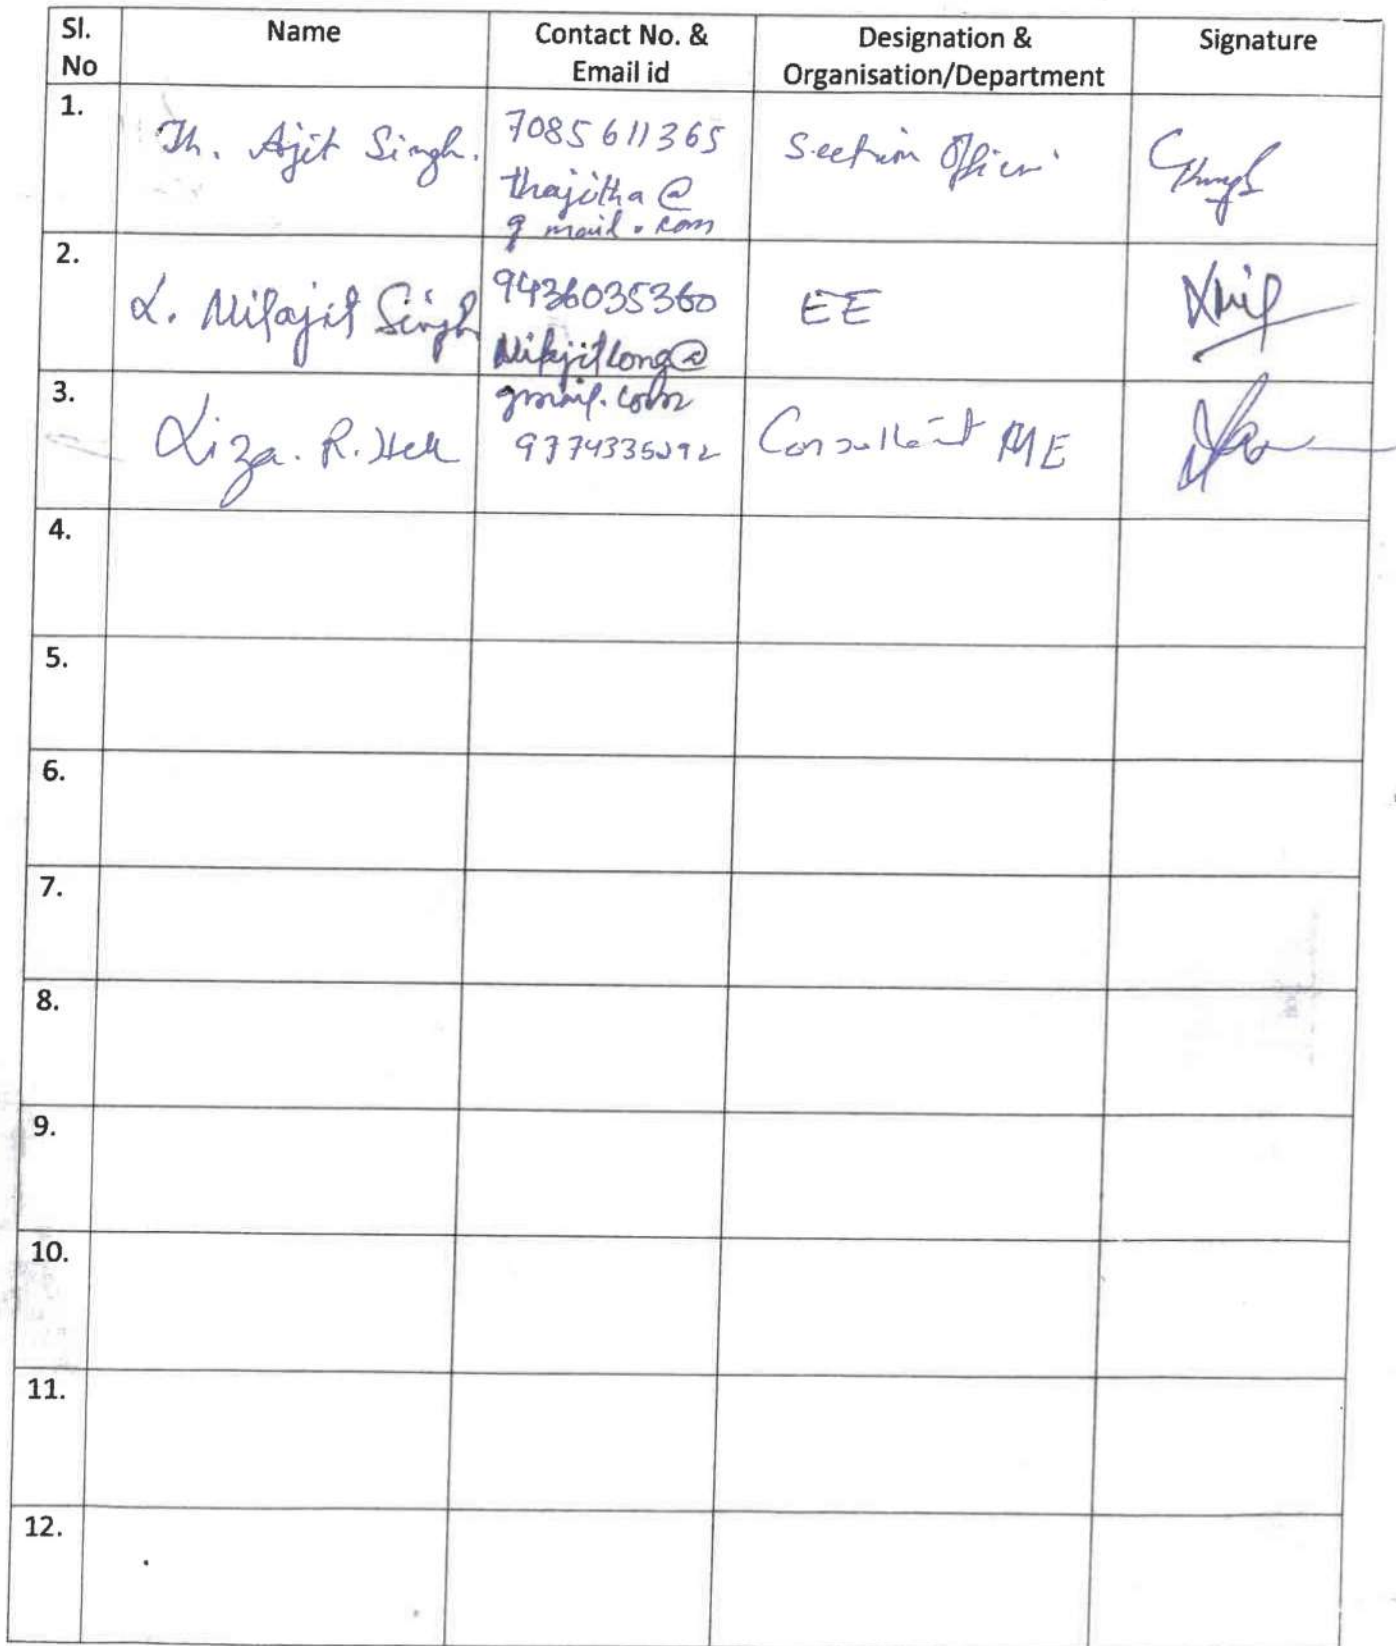 Sl. No
Name
Contact No. & Email id
Designation & Organisation/Department
Signature
1.
Th. Ajit Singh.
7085611365
thajitha@
gmail.com
Section Officer
2.
L. Nilajit Singh
9436035360
gmail.com
EE
3.
Liza. R.
Consultant ME
4.
5.
6.
7.
8.
9.
10.
11.
12.